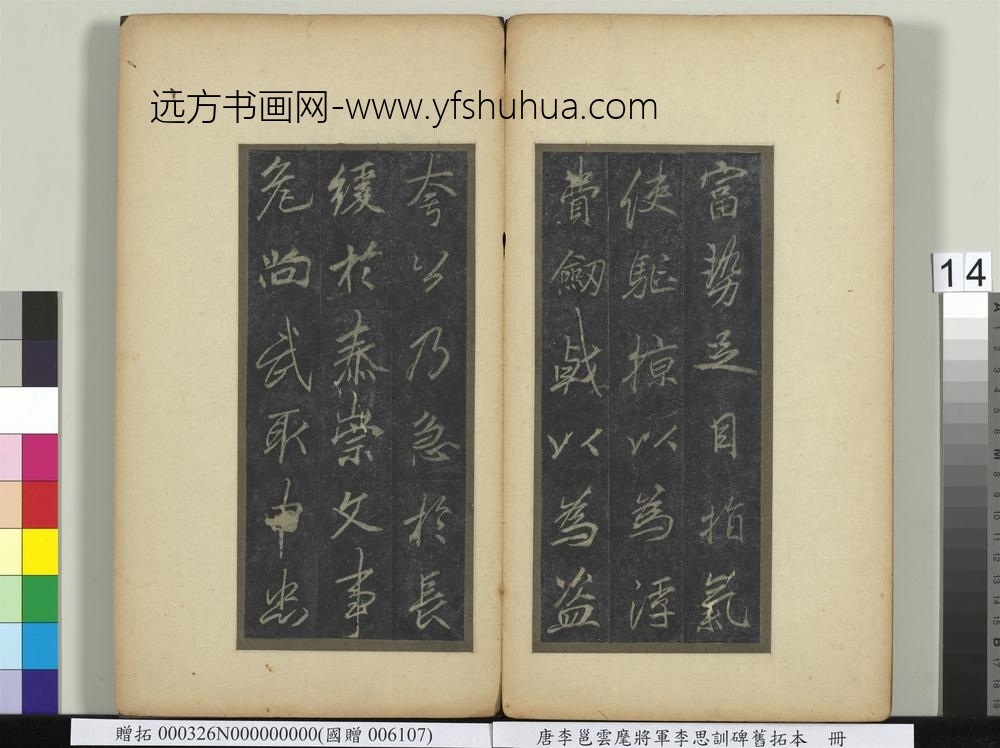 远方书画网-www.yfshuhua.com
富勢足目指氣
使駈掠以為浮
費劒戟以為盜
夸公乃急於長
緩於泰崇文事
危尚武耿申忠
14
贈拓 000326N000000000(國贈 006107)
唐李邕雲麾將軍李思訓碑舊拓本 冊